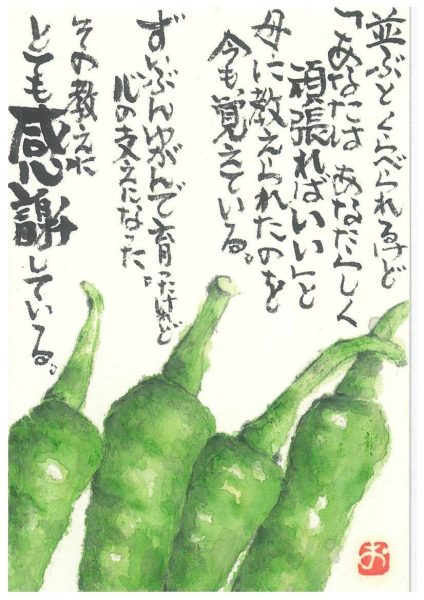 並ぶとくらべられるけど
「あなたは あなたらしく
頑張ればいい」と
母に教えられたのを
今も覚えている。
ずいぶんゆがんで育ったけれど
心の支えになった。
その教えに
とても感謝している。
お